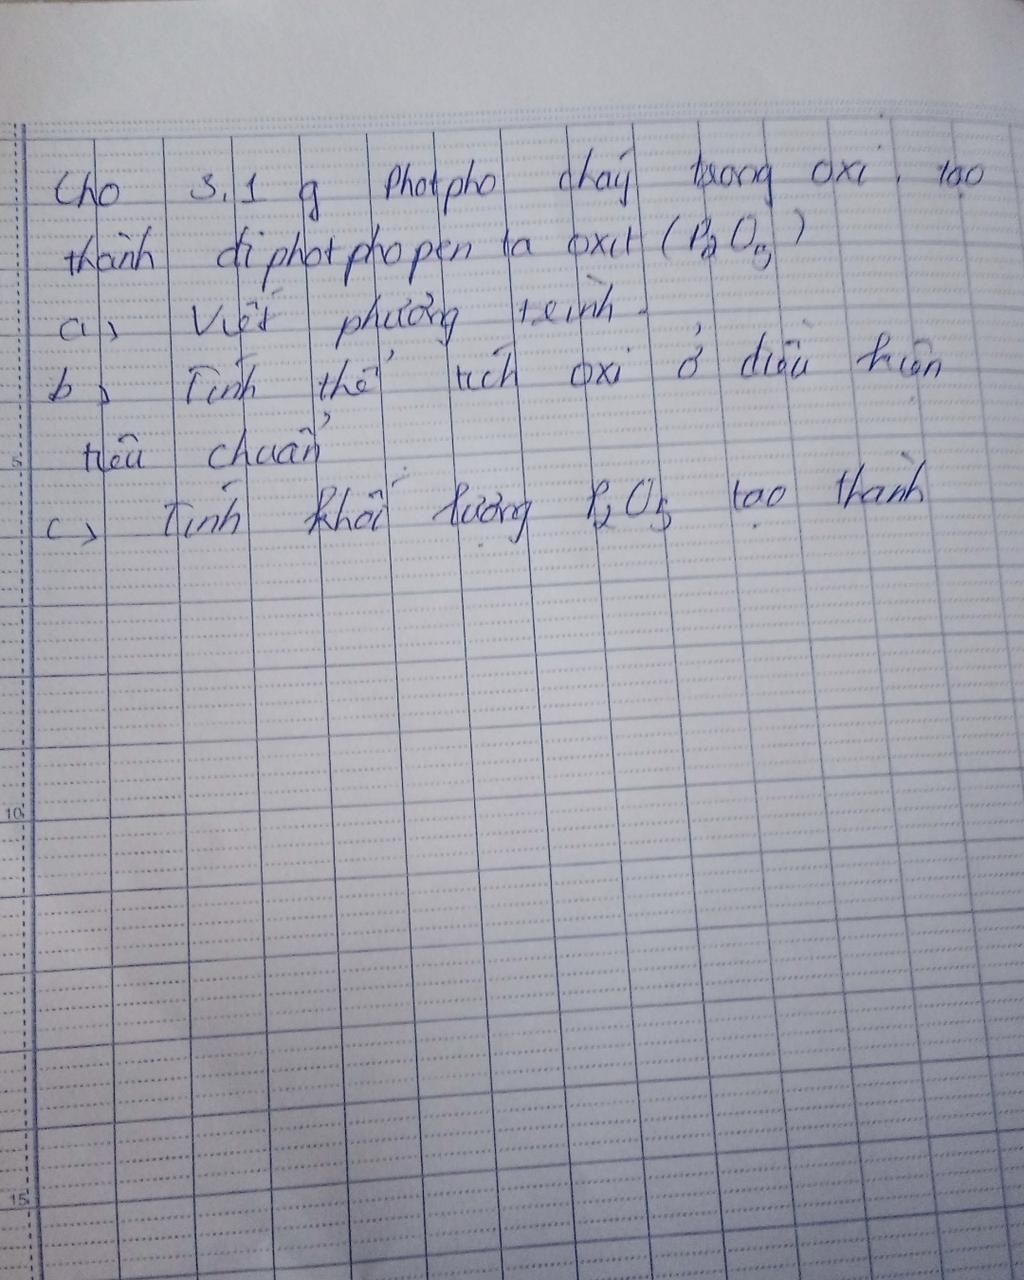 Cho 3,1 g Photpho cháy trong oxi, tạo
thành điphotphopen ta oxit (P2O5)
a, Viết phương trình.
b, Tính thể tích oxi ở điều kiện
5
tiêu chuẩn
c, Tính khối lượng P2O5 tạo thành
10
15